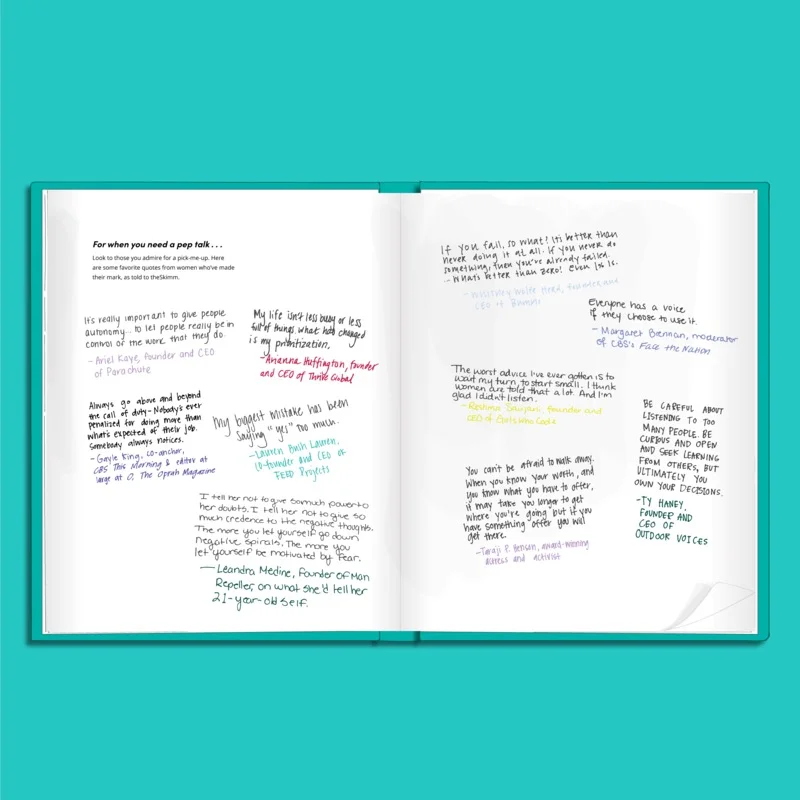 For when you need a pep talk . . .
Look to those you admire for a pick-me-up. Here
are some favorite quotes from women who've made
their mark, as told to theSkimm.
It's really important to give people
autonomy... to let people really be in
control of the work that they do.
- Ariel Kaye, founder and CEO
of Parachute
My life isn't less busy or less
full of things, what has changed
is my prioritization.
- Arianna Huffington, founder
and CEO of Thrive Global
Always go above and beyond
the call of duty - Nobody's ever
penalized for doing more than
what's expected of their job.
Somebody always notices.
- Gayle King, co-anchor,
CBS This Morning & editor at
large at O, The Oprah Magazine
My biggest mistake has been
saying "yes" too much.
- Lauren Bush Lauren,
co-founder and CEO of
FEED Projects
I tell her not to give so much power to
her doubts. I tell her not to give so
much credence to the negative thoughts.
The more you let yourself go down
negative spirals. The more you
let yourself be motivated by fear.
- Leandra Medine, founder of Man
Repeller, on what she'd tell her
21-year-old self.
If you fail, so what! It's better than
never doing it at all. If you never do
something, then you're already failed.
... What's better than zero? Even 1% is.
- Whitney Wolfe Herd, founder and
CEO of Bumble
Everyone has a voice
if they choose to use it.
- Margaret Brennan, moderator
of CBS's Face the Nation
The worst advice I've ever gotten is to
wait my turn, to start small. I think
women are told that a lot. And I'm
glad I didn't listen.
- Reshma Saujani, founder and
CEO of Girls Who Code
You can't be afraid to walk away.
When you know your worth, and
you know what you have to offer,
it may take you longer to get
where you're going but if you
have something offer you will
get there.
- Taraji P. Henson, award-winning
actress and activist
BE CAREFUL ABOUT
LISTENING TO TOO
MANY PEOPLE. BE
CURIOUS AND OPEN
AND SEEK LEARNING
FROM OTHERS, BUT
ULTIMATELY YOU
OWN YOUR DECISIONS.
- TY HANEY,
FOUNDER AND
CEO OF
OUTDOOR VOICES